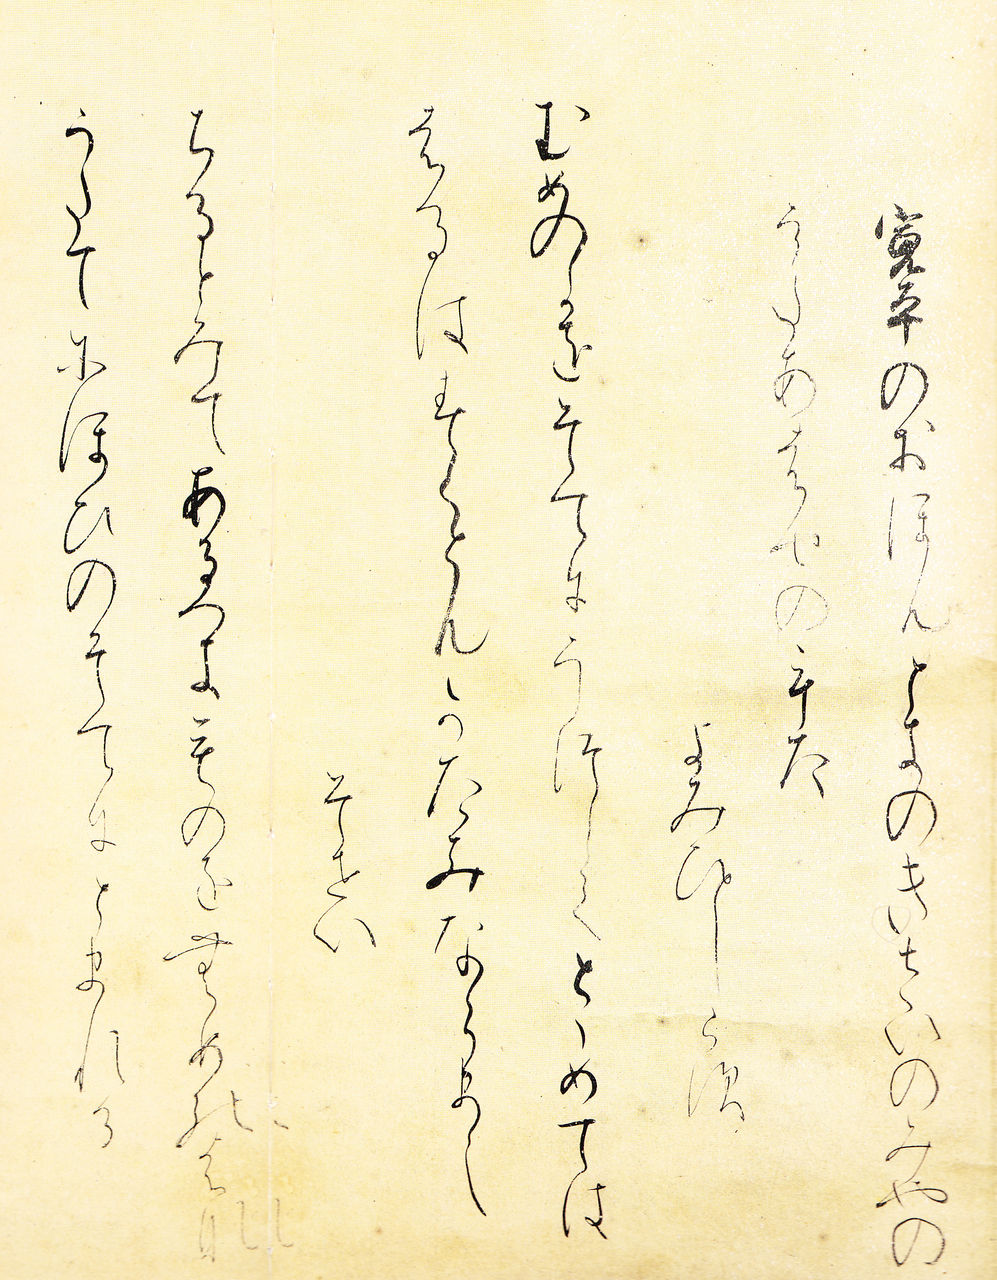 寛平のおほんときのきさいのみやの
うたあはせのうた
よみひとしらす
むめのかをそてにうつしてとゝめては
はるはすくともかたみならまし
そせい
ちるとみてあるへきものをむめのはな
うたてにほひのそてにとまれる